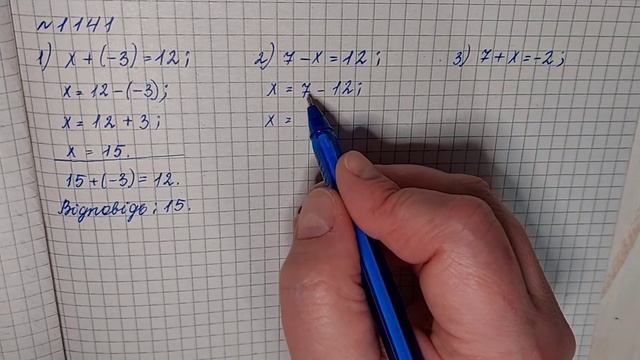 №1141
1) x + (-3) = 12;
x = 12 - (-3);
x = 12 + 3;
x = 15.
15 + (-3) = 12.
Відповідь: 15.
2) 7 - x = 12;
x = 7 - 12;
x =
3) 7 + x = -2;